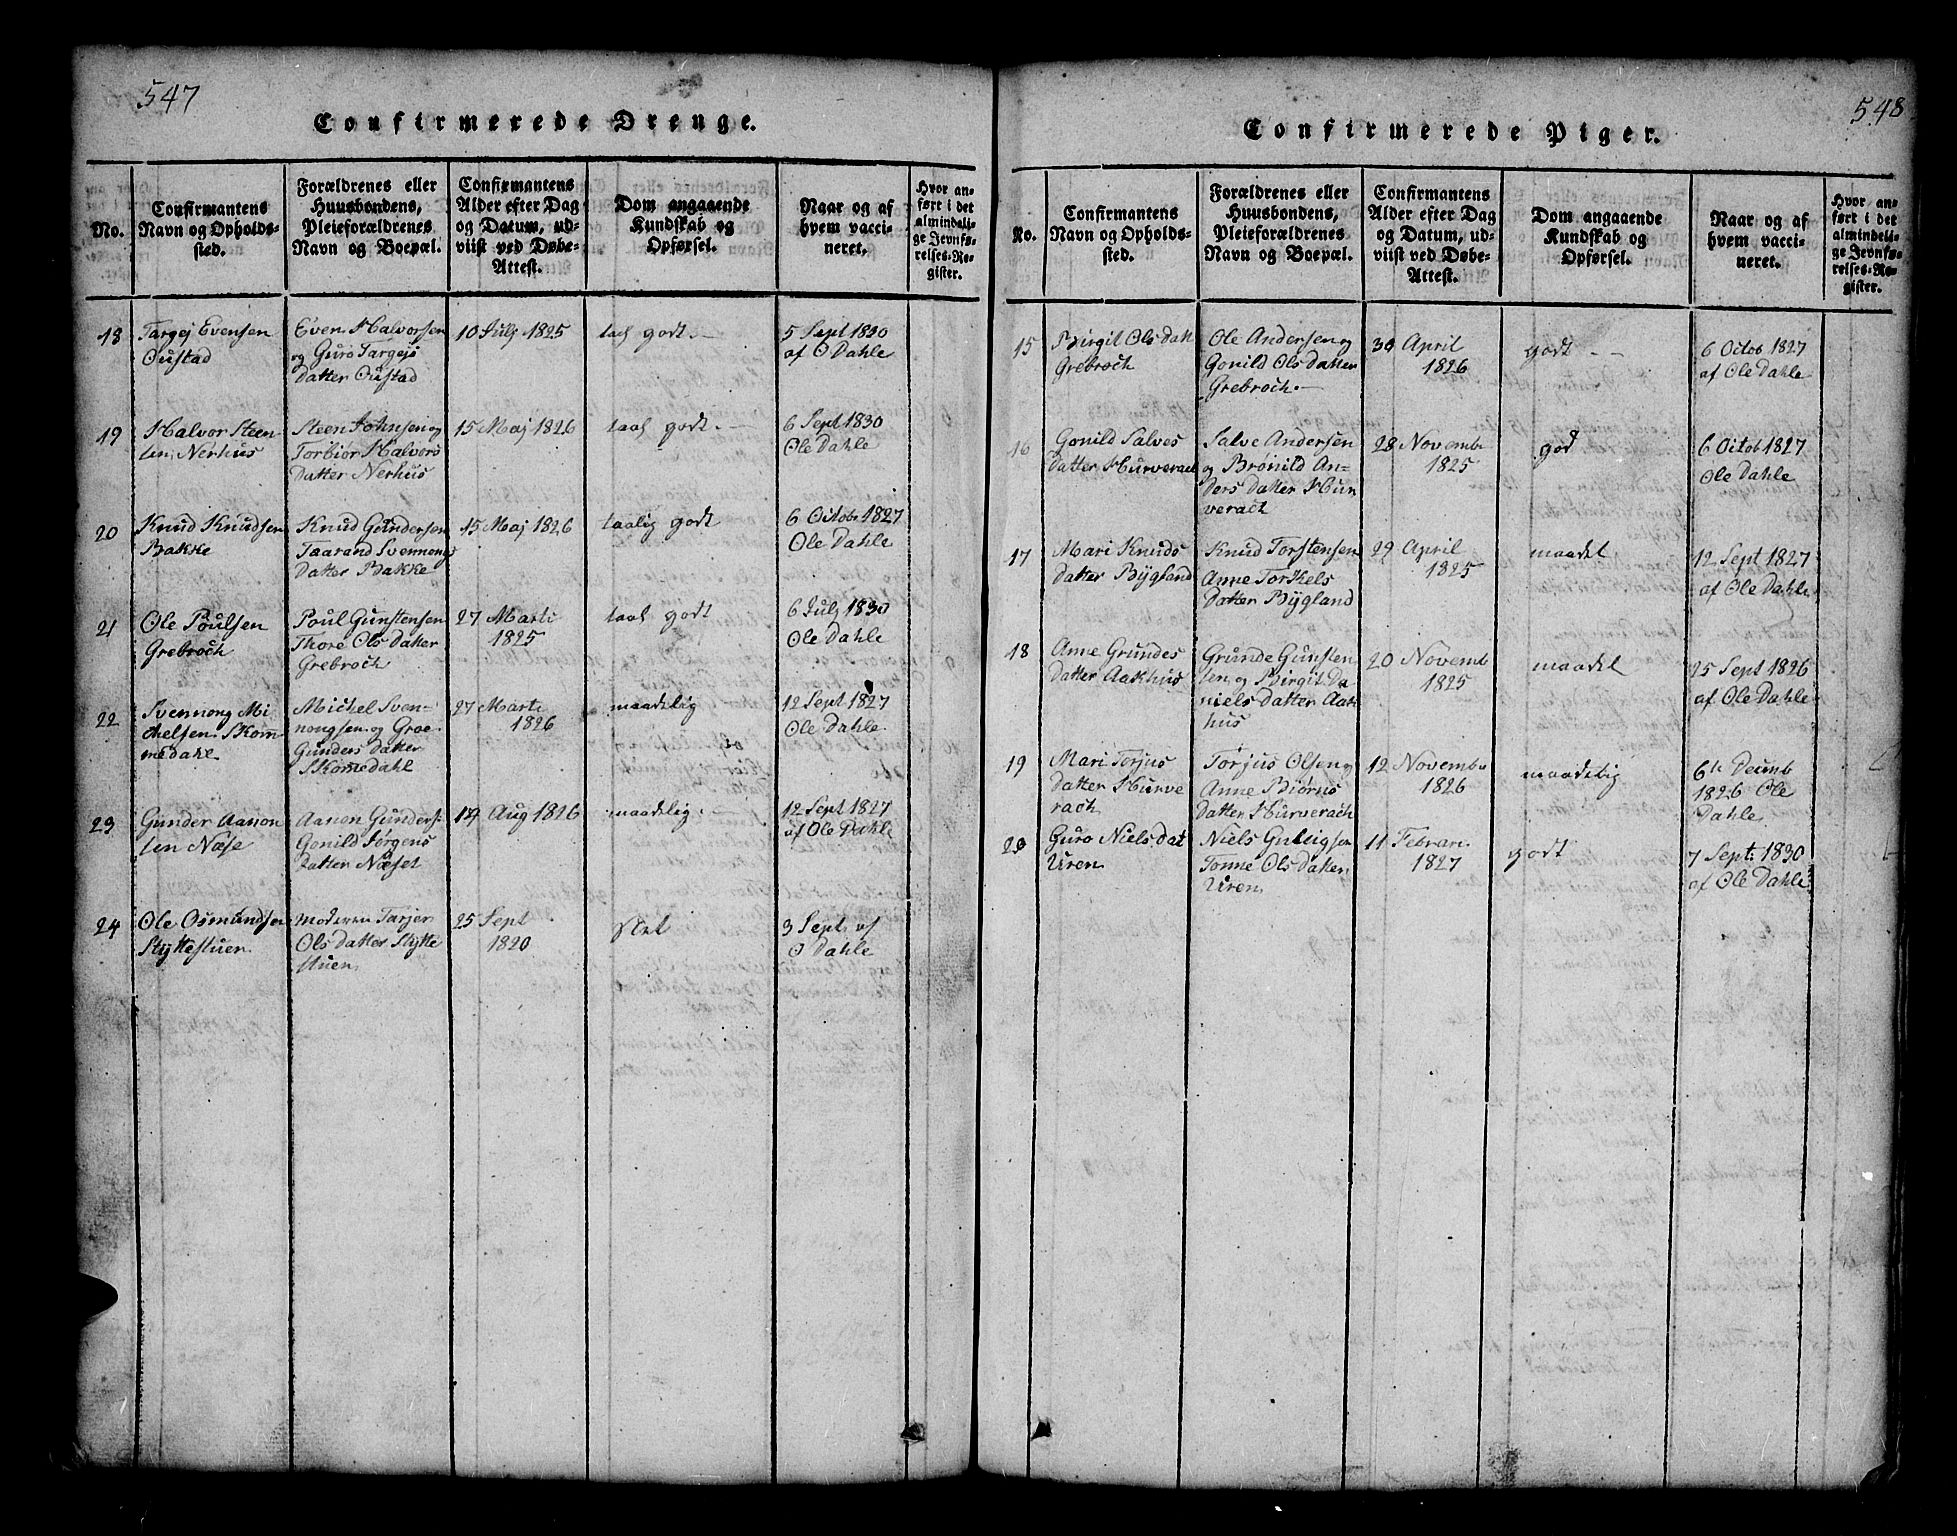 547
Confirmerede Drenge.
No.
Confirmantens
Navn og Opholds-
sted.
Forældrenes eller
Huusbondens,
Pleieforældrenes
Navn og Boepæl.
Confirmantens
Alder efter Dag
og Datum, ud-
viist ved Døbe-
Attest.
Dom angaaende
Kundskab og
Opførsel.
Naar og af
hvem vacci-
neret.
Hvor an-
ført i det
almindeli-
ge Jevnfø-
relses-Re-
gister.
18
Targej Evensen
Oustad
Even Halvorsen
og Guro Targejs
Datter Oustad
10 Julj 1825
taal godt.-
5 Sept 1830
af O Dahle
19
Halvor Steen
sen Nerhus
Steen Johnsen og
Torbiør Halvors
Datter Nerhus
15 Maj 1826
taal godt.-
6 Sept 1830
Ole Dahle
20
Knud Knudsen
Bakke
Knud Gundersen
Taarand Svennongs
Datter Bakke
15 Maj 1826
taalig godt
6 Octob 1827
Ole Dahle
21
Ole Poulsen
Grebroch
Poul Gunstensen
Thore Ols Datter
Grebroch
27 Marti
1825
taal godt
6 Julj 1830
Ole Dahle
22
Svennong Mi
chelsen Skom
medahl
Michel Sven-
nongsen og Groe
Gunders Datter
Skomedahl
27 Marti
1826
maadelig
12 Sept 1827
Ole Dahle
23
Gunder Aanon
sen Næse
Aanon Gunders
Gonild Jørgens
Datter Næset
14 Aug 1826
maadelig.-
12 Sept 1827
af Ole Dahle
24
Ole Osmundsen
Stÿttestuen
Moderen Tarjer
Ols Datter Stÿtte
stuen
25 Sept
1820
slet
3 Sept af
O Dahle
548
Confirmerede Piger.
No.
Confirmantens
Navn og Opholds-
sted.
Forældrenes eller
Huusbondens,
Pleieforældrenes
Navn og Boepæl.
Confirmantens
Alder efter Dag
og Datum, ud-
viist ved Døbe-
Attest.
Dom angaaende
Kundskab og
Opførsel.
Naar og af
hvem vacci-
neret.
Hvor an-
ført i det
almindeli-
ge Jevnfø-
relses-Re-
gister.
15
Birgit Ols Datt
Grebroch
Ole Andersen og
Gonild Ols Datter
Grebroch.-
30 April
1826
godt --
6 Octob 1827
af Ole Dahle
16
Gonild Salves
Datter Hurverach
Salve Andersen
og Brønild An-
ders Datter Hur
verach
28 Novemb
1825
god
6 Octob 1827
Ole Dahle
17
Mari Knuds
Datter Bÿgland
Knud Torstensen
Anne Torkels
Datter Bÿgland
29 April
1825
maadel
12 Sept 1827
af Ole Dahle
18
Anne Grundes
Datter Aakhus
Grunde Gunsten
sen og Birgit Da
niels Datter Aak
hus
20 Novemb
1825
maadel
25 Sept 1826
af Ole Dahle
19
Mari Torjus
Datter Hurve
rach
Torjus Olsen og
Anne Biørns
Datter Hurverach
12 Novemb
1826
maadelig
6te Decemb
1826 Ole
Dahle
20
Guro Niels Dat
Uren
Niels Gulligsen
Tonne Ols Datter
Uren
11 Februari
1827
godt
7 Sept: 1830
af Ole Dahle